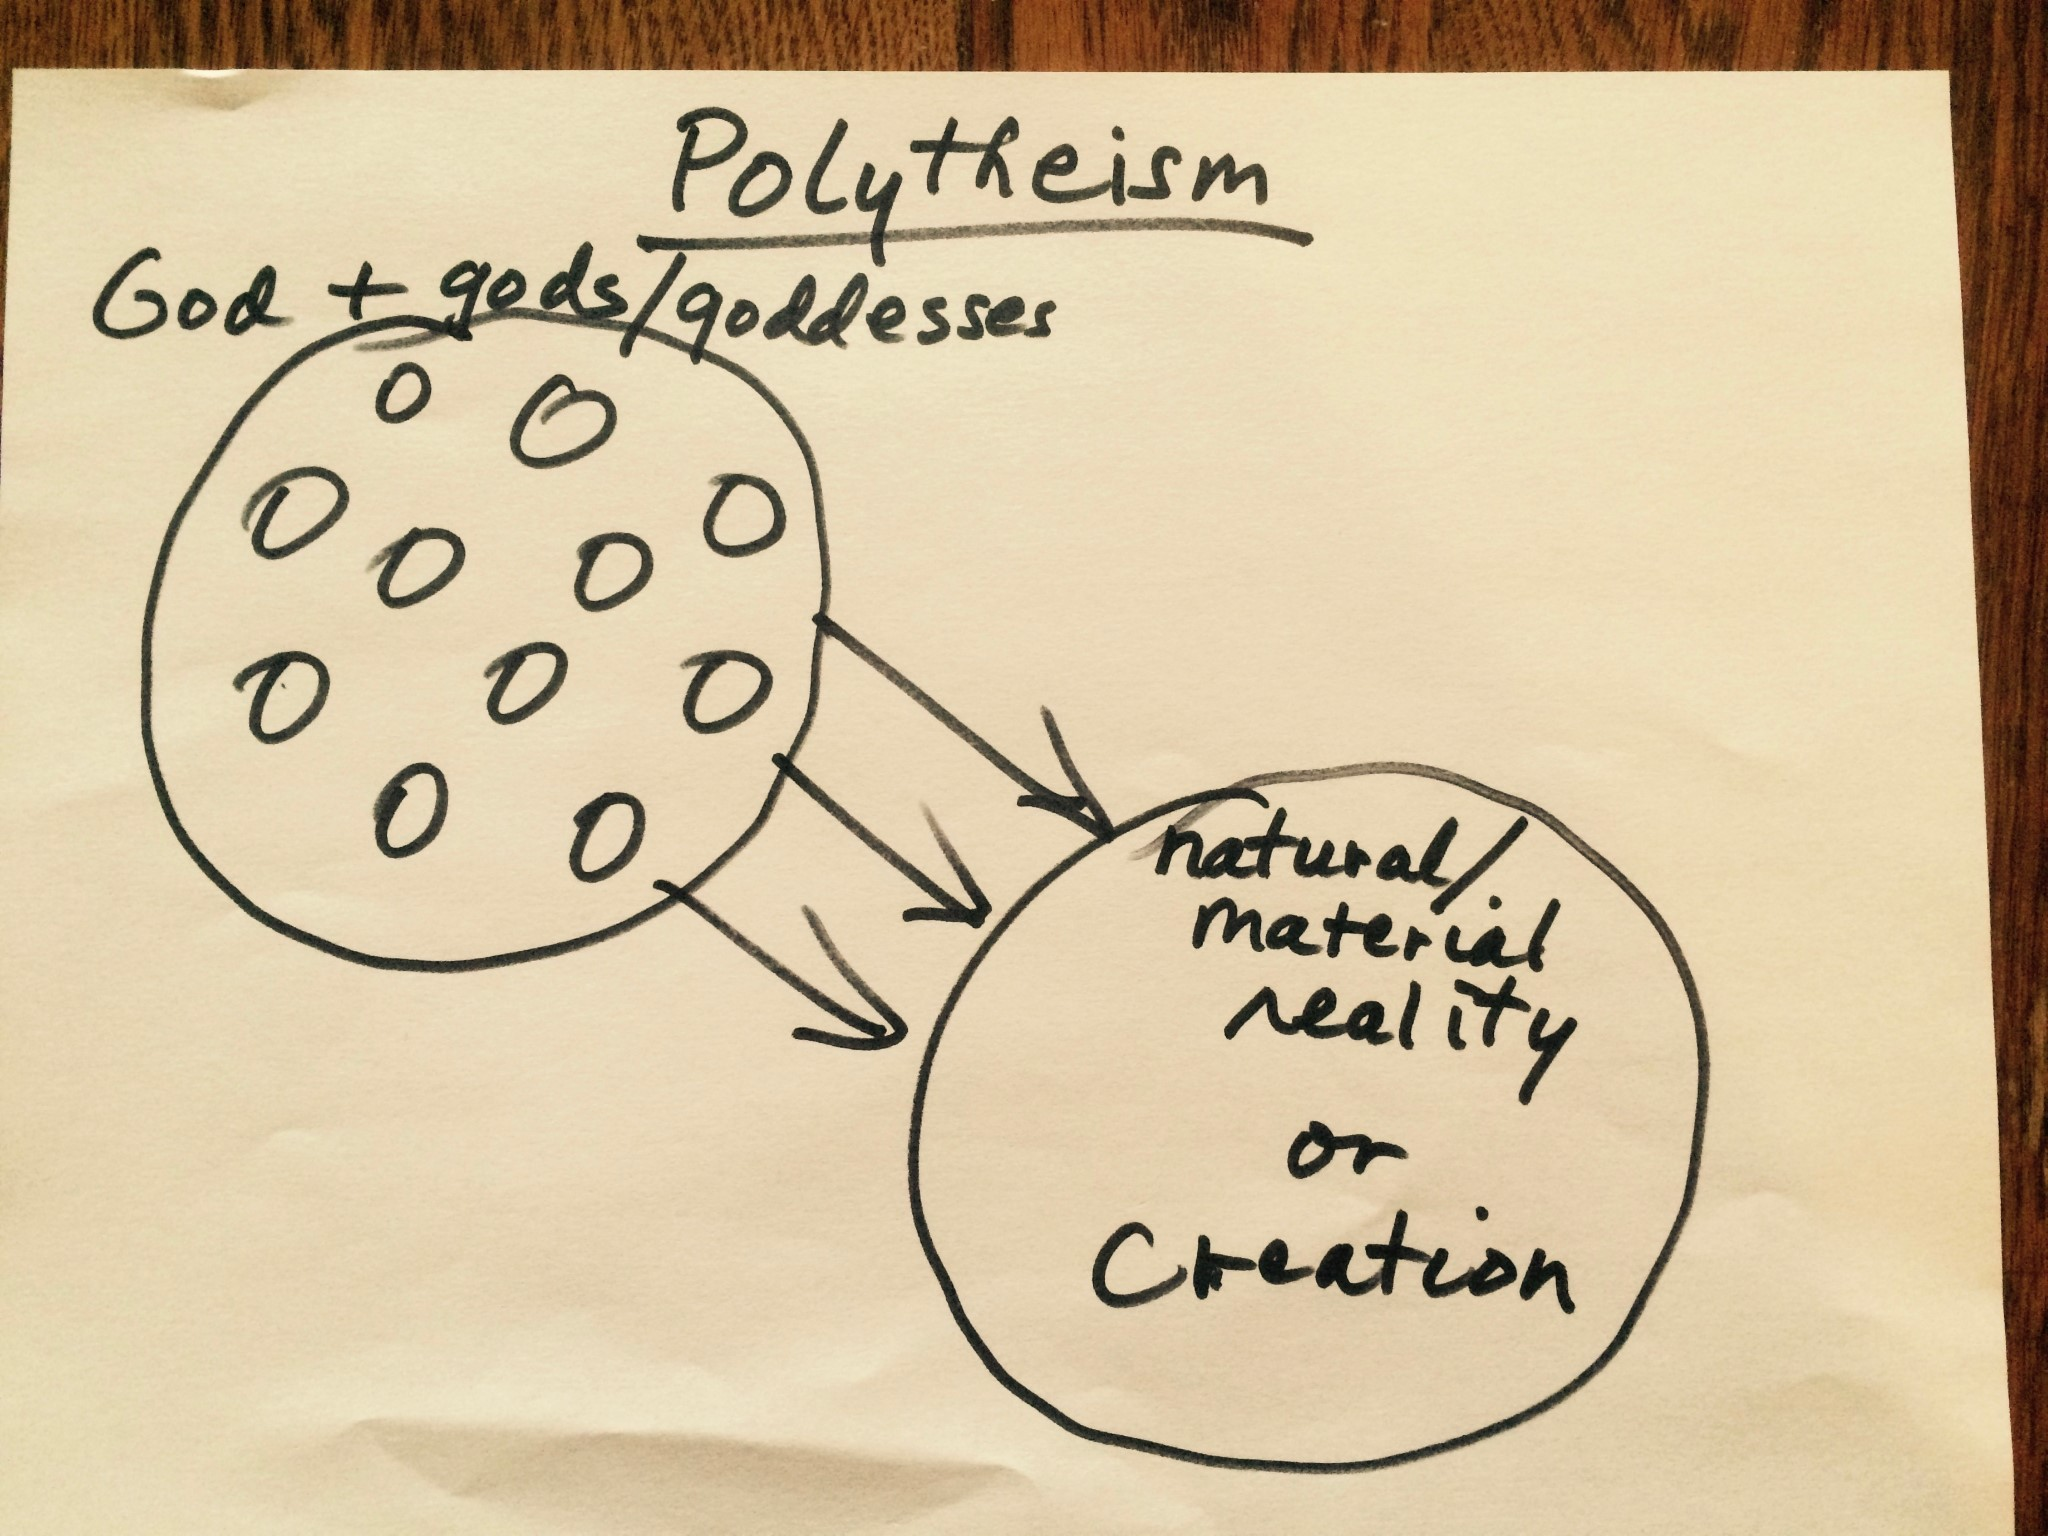 Polytheism
God + gods/goddesses
natural/
material
reality
or
Creation